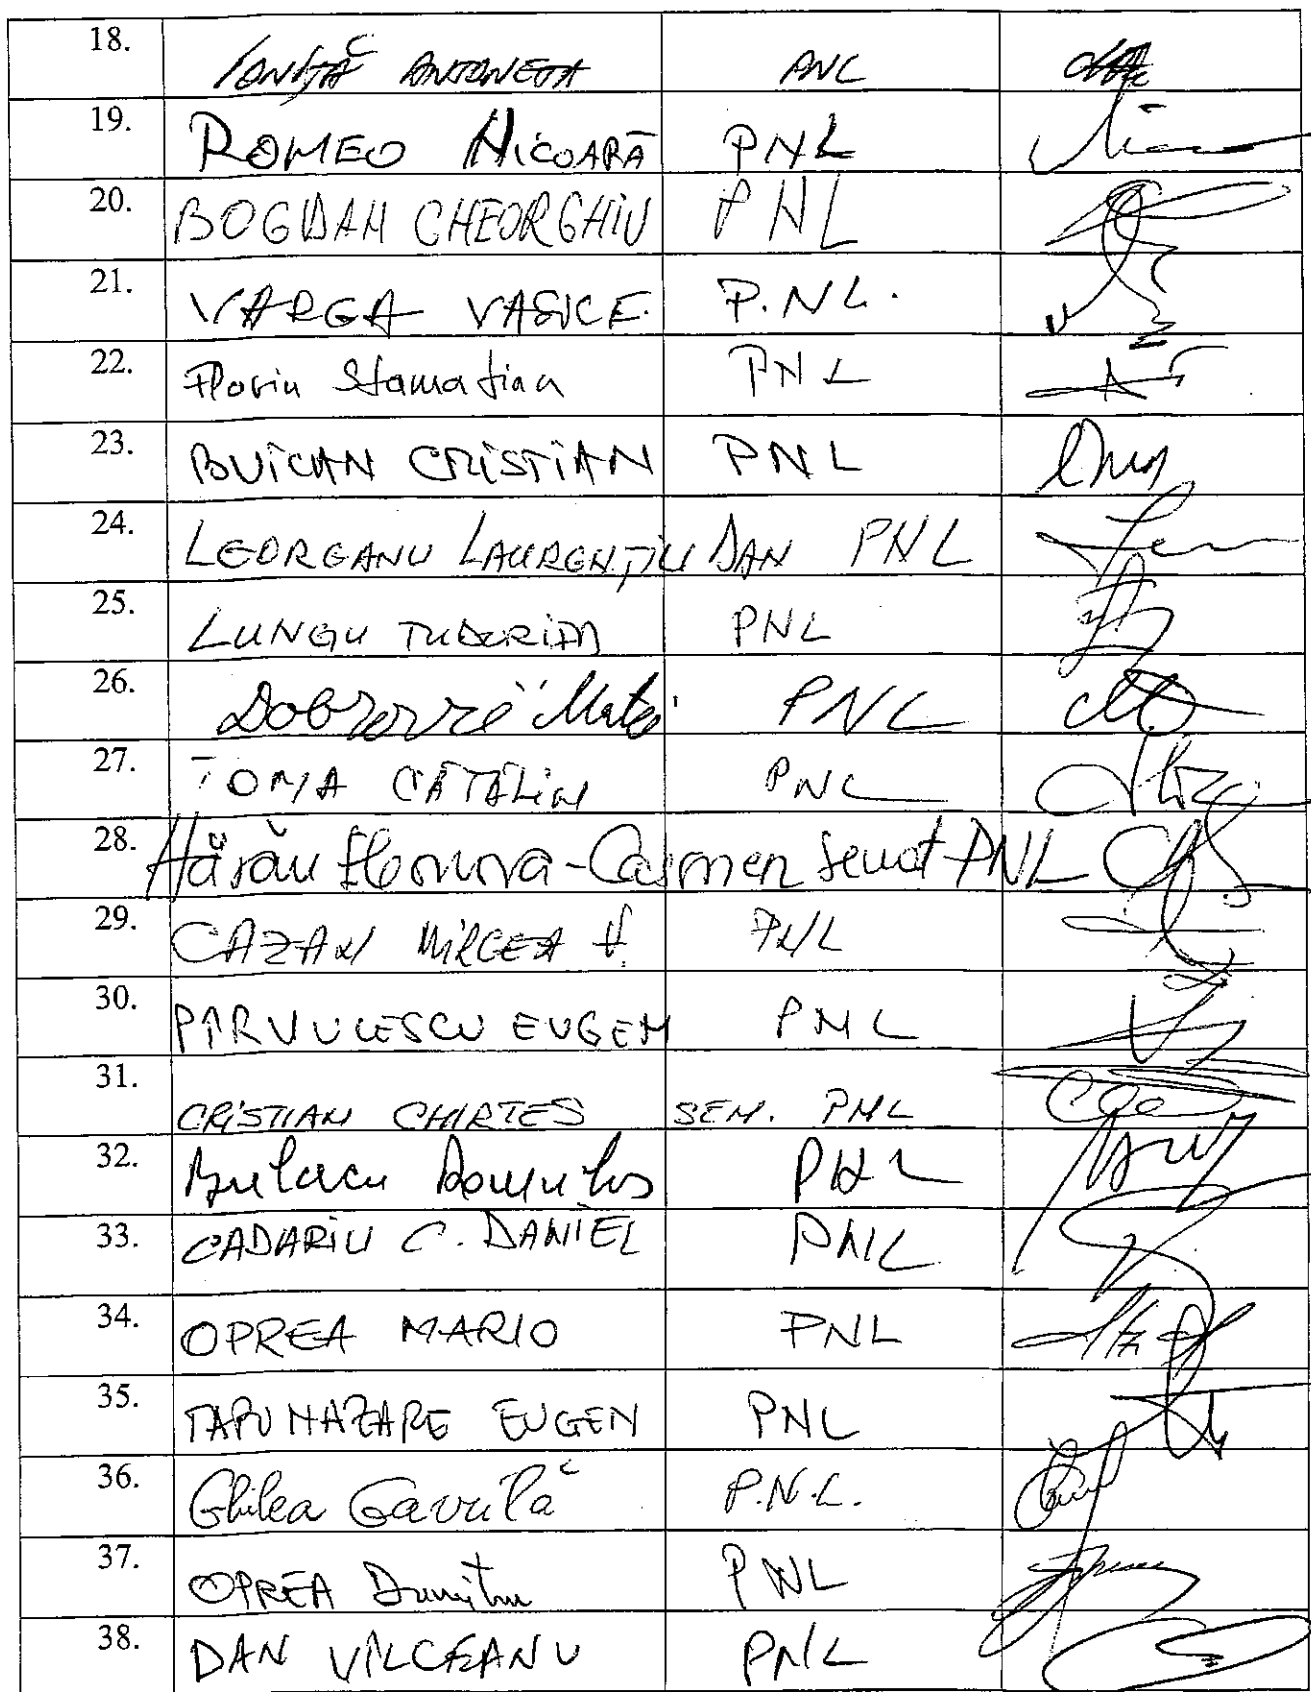 18. IONIȚĂ ANTONETA PNL
19. ROMEO NICOARĂ PNL
20. BOGDAN GHEORGHIU PNL
21. VARGA VASILE. P.NL.
22. Florin Stamatian PNL
23. BUICAN CRISTIAN PNL
24. LEOREANU LAURENȚIU DAN PNL
25. LUNGU TUDORIȚA PNL
26. Dobrovie Matei PNL
27. TOMA CĂTĂLIN PNL
28. Hărău Eleonora-Carmen Senat PNL
29. CAZAN MIRCEA V. PNL
30. PÎRVULESCU EUGEN PNL
31. CRISTIAN CHIRTEȘ SEN. PNL
32. Bulacu Romulus PNL
33. CADARIU C. DANIEL PNL
34. OPREA MARIO PNL
35. TAPU NAZARE EUGEN PNL
36. Ghilea Gavrilă P.N.L.
37. OPREA Dumitru PNL
38. DAN VÎLCEANU PNL